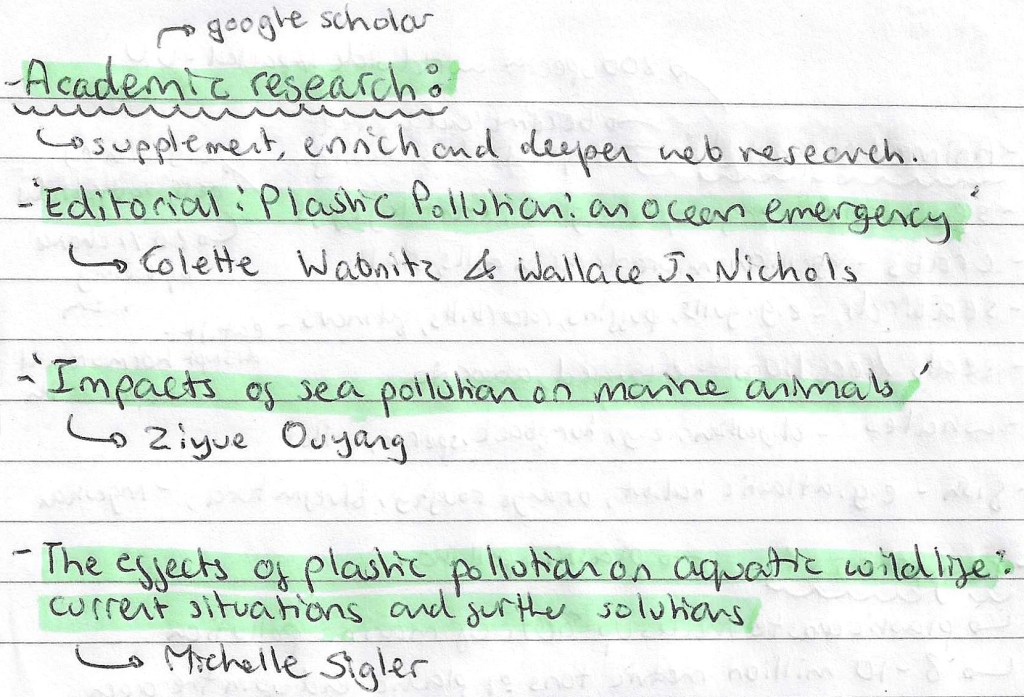 → google scholar
- Academic research:
↳ supplement, enrich and deeper web research.
- 'Editorial: Plastic Pollution: an ocean emergency'
↳ Colette Wabnitz & Wallace J. Nichols
- 'Impacts of sea pollution on marine animals'
↳ Ziyue Ouyang
- The effects of plastic pollution on aquatic wildlife:
current situations and further solutions
↳ Michelle Sigler